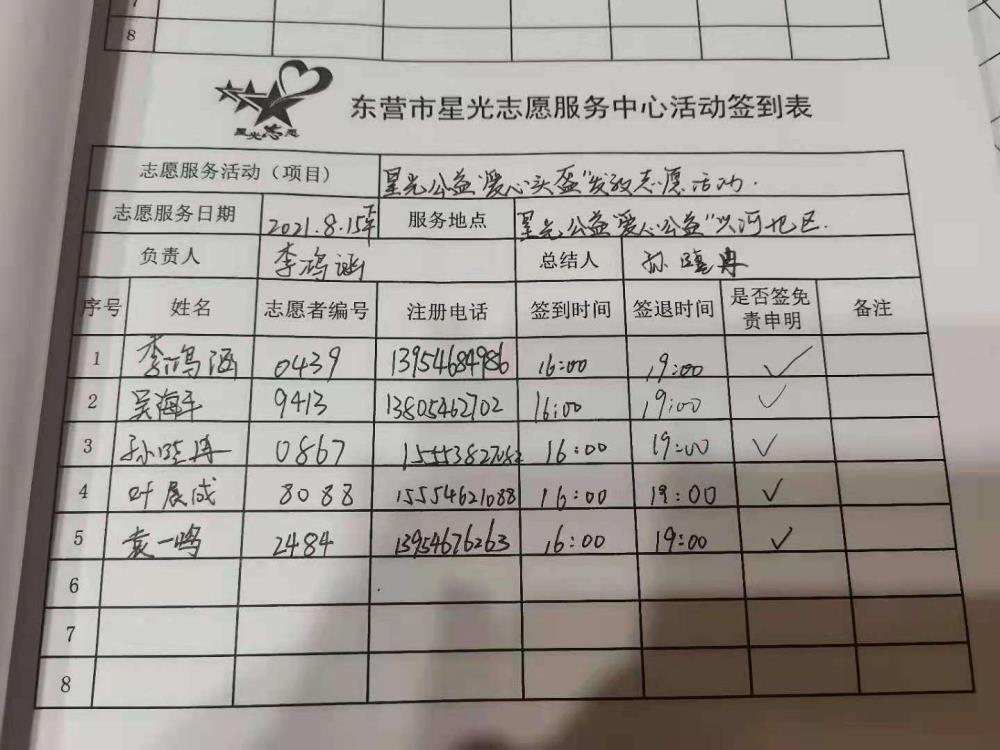 7
8
星光志愿
东营市星光志愿服务中心活动签到表
志愿服务活动（项目） 星光公益"爱心头盔"发放志愿活动.
志愿服务日期 2021.8.15 服务地点 星光公益"爱心公益"
负责人 李鸿涵 总结人 孙
序号 姓名 志愿者编号 注册电话 签到时间 签退时间 是否签免责申明 备注
1 李鸿涵 0439 13954684986 16:00 19:00 ✓
2 吴海平 9413 13805462702 16:00 19:00 ✓
3 孙 0867 16:00 19:00 ✓
4 叶展成 8088 15554621088 16:00 19:00 ✓
5 袁一鸣 2484 13954676263 16:00 19:00 ✓
6
7
8